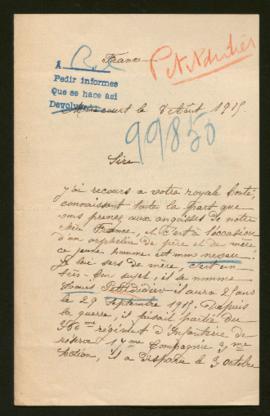 France
Petitdidier
A
Pedir informes
Que se hace asi
Devolver
court le 8 Août 1915
99850
Sire
J'ai recours a votre royale bonté,
connaissant toute la part que
vous prenez aux angoisses de notre
chère France, et c'est à l'occasion
d'un orphelin de père et de mère,
ce jeune homme est mon neveu
je lui sers de mère, c'est un
très bon sujet, il se nomme
Louis Petitdidier il aura 25 ans
le 29 septembre 1915. Depuis
la guerre, il faisait partie du
me régiment d'Infanterie de
réserve, 17me Compagnie, 3me
Section, il a disparu le 3 octobre